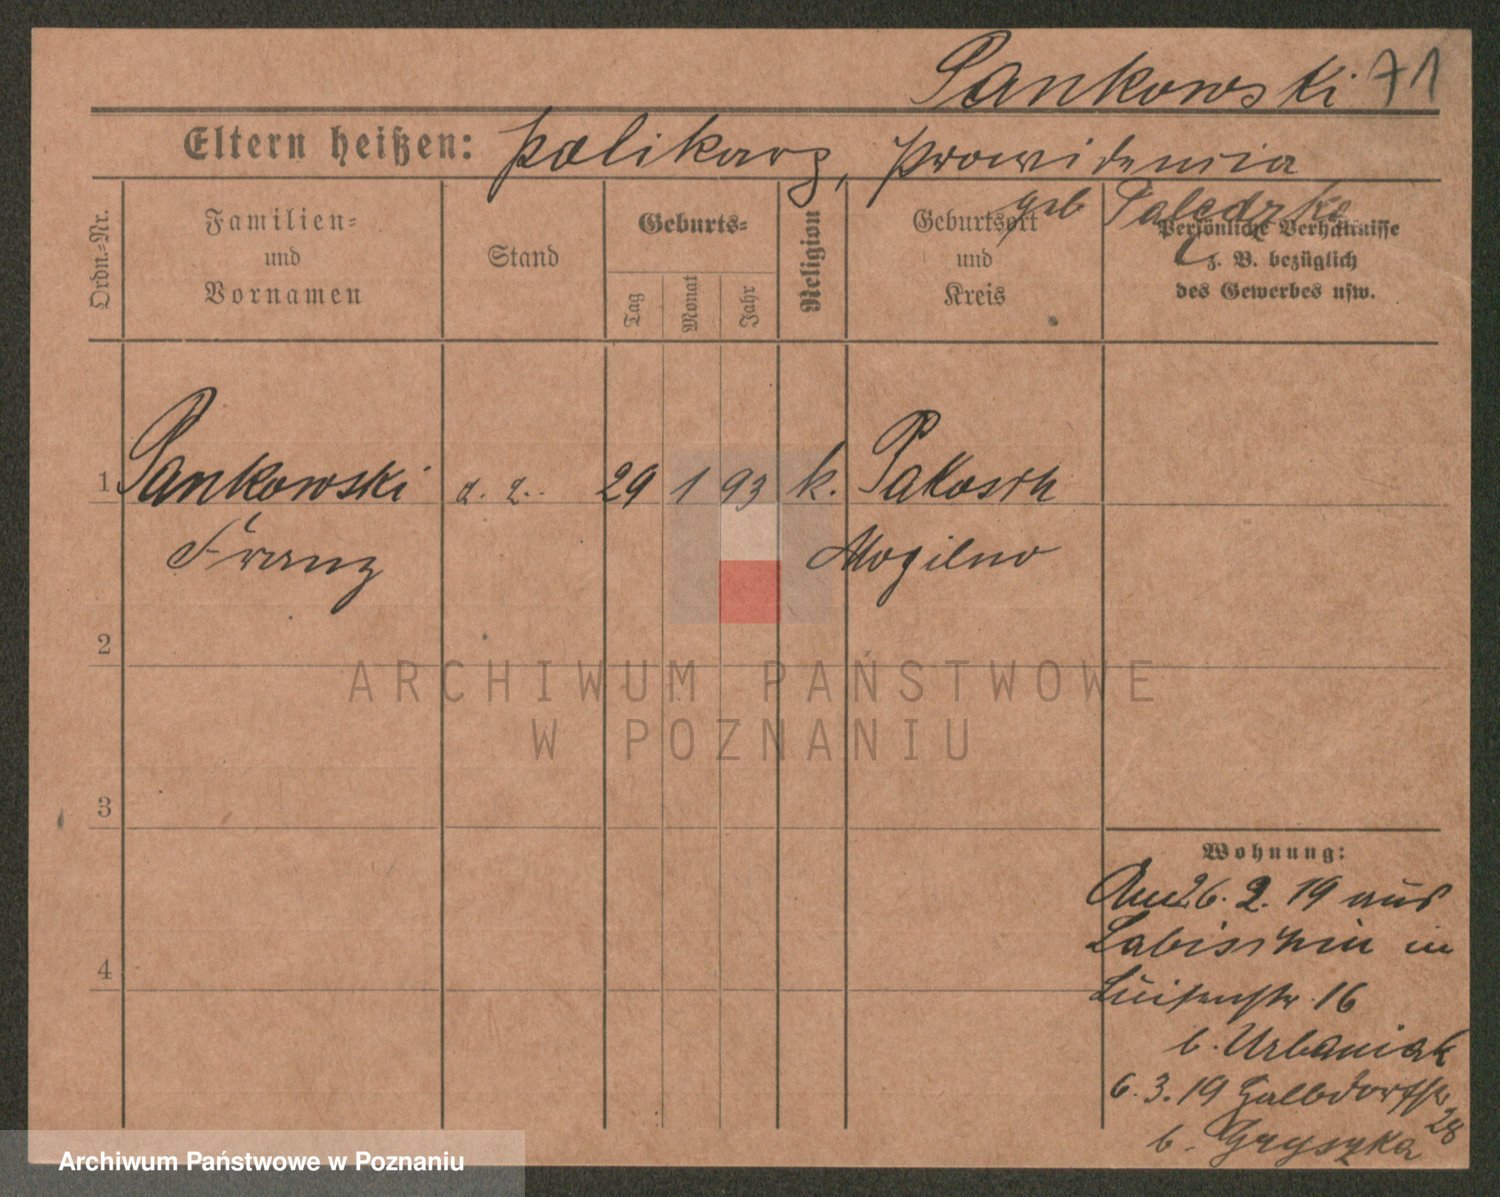 Pankowski 71
Eltern heißen: Polikarp, Prowidencia
geb
Ordn.-Nr.
Familien- und Vornamen
Stand
Geburts-
Tag
Monat
Jahr
Religion
Geburtsort und Kreis
Persönliche Verhältnisse
z. B. bezüglich
des Gewerbes usw.
1 Pankowski 29 1 93 k. Pakosch
Franz Mogilno
2
3
4
Wohnung:
Am 26. 2. 19 aus
Labischin in
Luisenstr. 16
b. Urbaniak
6. 3. 19
28
b.
ARCHIWUM PAŃSTWOWE
W POZNANIU
Archiwum Państwowe w Poznaniu